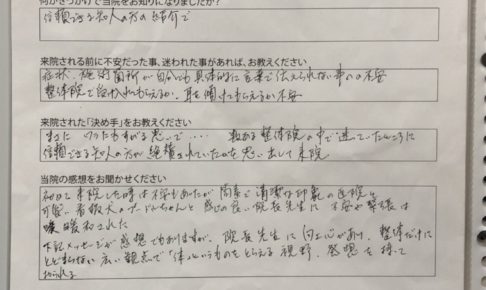 何がきっかけで当院をお知りになりましたか？
信頼できる知人の方の紹介で
来院される前に不安だった事、迷われた事があれば、お教えください
症状、施術箇所が自分でも具体的に言葉で伝えられない事への不安
整体院で受け入れもらえるか、耳を傾けもらえるか不安
来院された「決め手」をお教えください
まさに わらをもすがる思いで‥‥ 数ある整体院の中で迷っていたところに
信頼できる知人の方が絶賛されていたのを思い出して来院
当院の感想をお聞かせください
初めて来院した時は不安もあったが簡素で清潔な印象の医院と
可愛い看板犬の ちゃんと感じの良い院長先生に 不安や緊張は
緩和された
下記メッセージが感想でもありますが、院長先生に向上心があり、整体だけに
とどまらない広い観点で「体」というものをとらえる視野、発想を持って
おられる